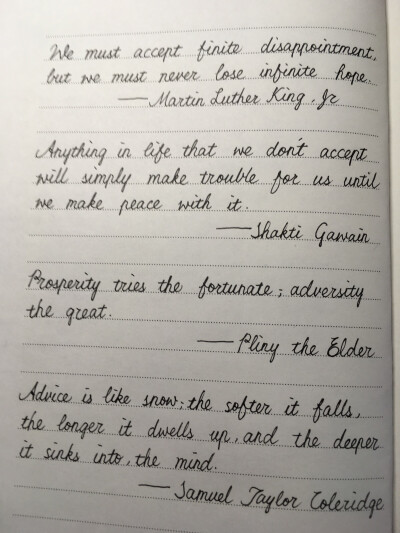 We must accept finite disappointment,
but we must never lose infinite hope.
—Martin Luther King, Jr
Anything in life that we don't accept
will simply make trouble for us until
we make peace with it.
—Shakti Gawain
Prosperity tries the fortunate; adversity
the great.
—Pliny the Elder
Advice is like snow; the softer it falls,
the longer it dwells up, and the deeper
it sinks into, the mind.
—Samuel Taylor Coleridge